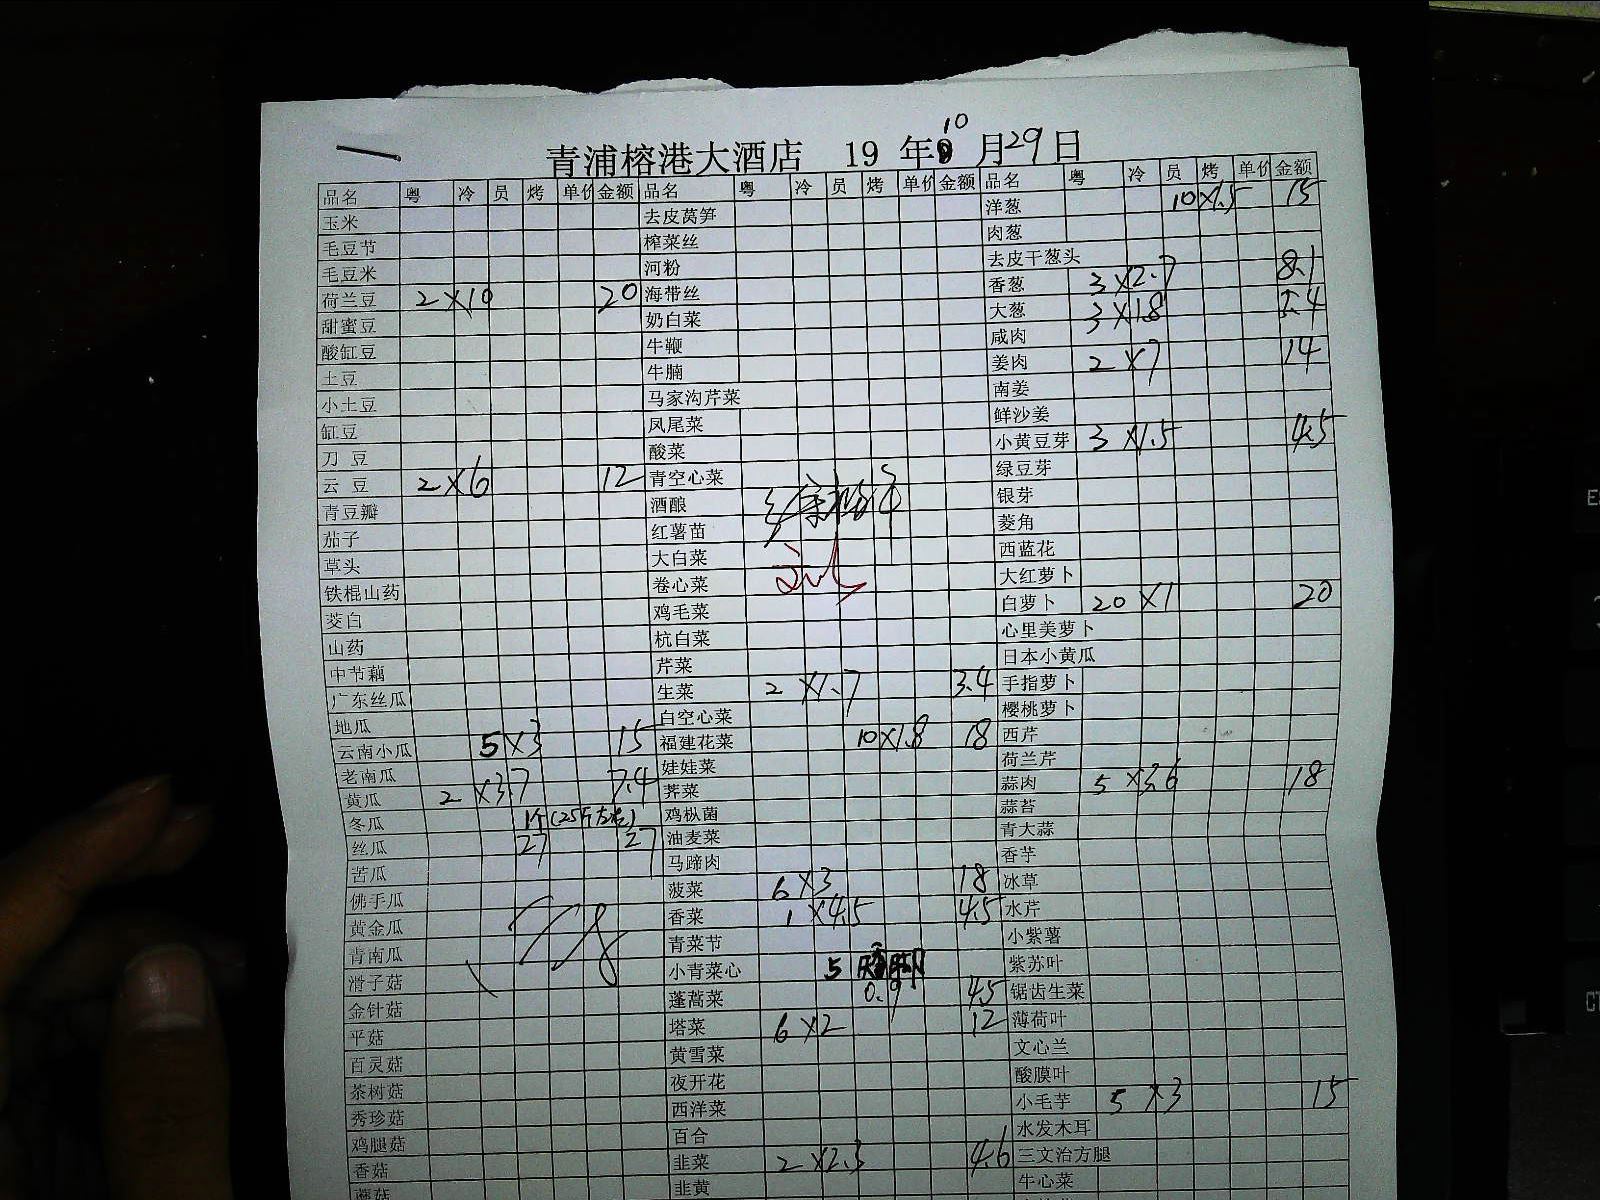 青浦榕港大酒店 19 年 10 月 29 日
品名 粤 冷 员 烤 单价 金额 品名 粤 冷 员 烤 单价 金额 品名 粤 冷 员 烤 单价 金额
玉米 去皮莴笋 洋葱 10×1.5 15
毛豆节 榨菜丝 肉葱
毛豆米 河粉 去皮干葱头
荷兰豆 2×10 20 海带丝 香葱 3×2.7 8.1
甜蜜豆 奶白菜 大葱 3×1.8 5.4
酸缸豆 牛鞭 咸肉
土豆 牛腩 姜肉 2×7 14
小土豆 马家沟芹菜 南姜
缸豆 凤尾菜 鲜沙姜
刀 豆 酸菜 小黄豆芽 3×1.5 4.5
云 豆 2×6 12 青空心菜 绿豆芽
青豆瓣 酒酿 银芽
茄子 红薯苗 菱角
草头 大白菜 西蓝花
铁棍山药 卷心菜 大红萝卜
茭白 鸡毛菜 白萝卜 20×1 20
山药 杭白菜 心里美萝卜
中节藕 芹菜 日本小黄瓜
广东丝瓜 生菜 2×1.7 3.4 手指萝卜
地瓜 白空心菜 樱桃萝卜
云南小瓜 5×3 15 福建花菜 10×1.8 18 西芹
老南瓜 娃娃菜 荷兰芹
黄瓜 2×3.7 7.4 荠菜 蒜肉 5×3.6 18
冬瓜 1个(25斤左右) 鸡枞菌 蒜苔
丝瓜 27 27 油麦菜 青大蒜
苦瓜 马蹄肉 香芋
佛手瓜 菠菜 6×3 18 冰草
黄金瓜 香菜 1×4.5 4.5 水芹
青南瓜 青菜节 小紫薯
滑子菇 小青菜心 5 紫苏叶
金针菇 蓬蒿菜 0.9 4.5 锯齿生菜
平菇 塔菜 6×2 12 薄荷叶
百灵菇 黄雪菜 文心兰
茶树菇 夜开花 酸膜叶
秀珍菇 西洋菜 小毛芋 5×3 15
鸡腿菇 百合 水发木耳
香菇 韭菜 2×2.3 4.6 三文治方腿
蘑菇 韭黄 牛心菜